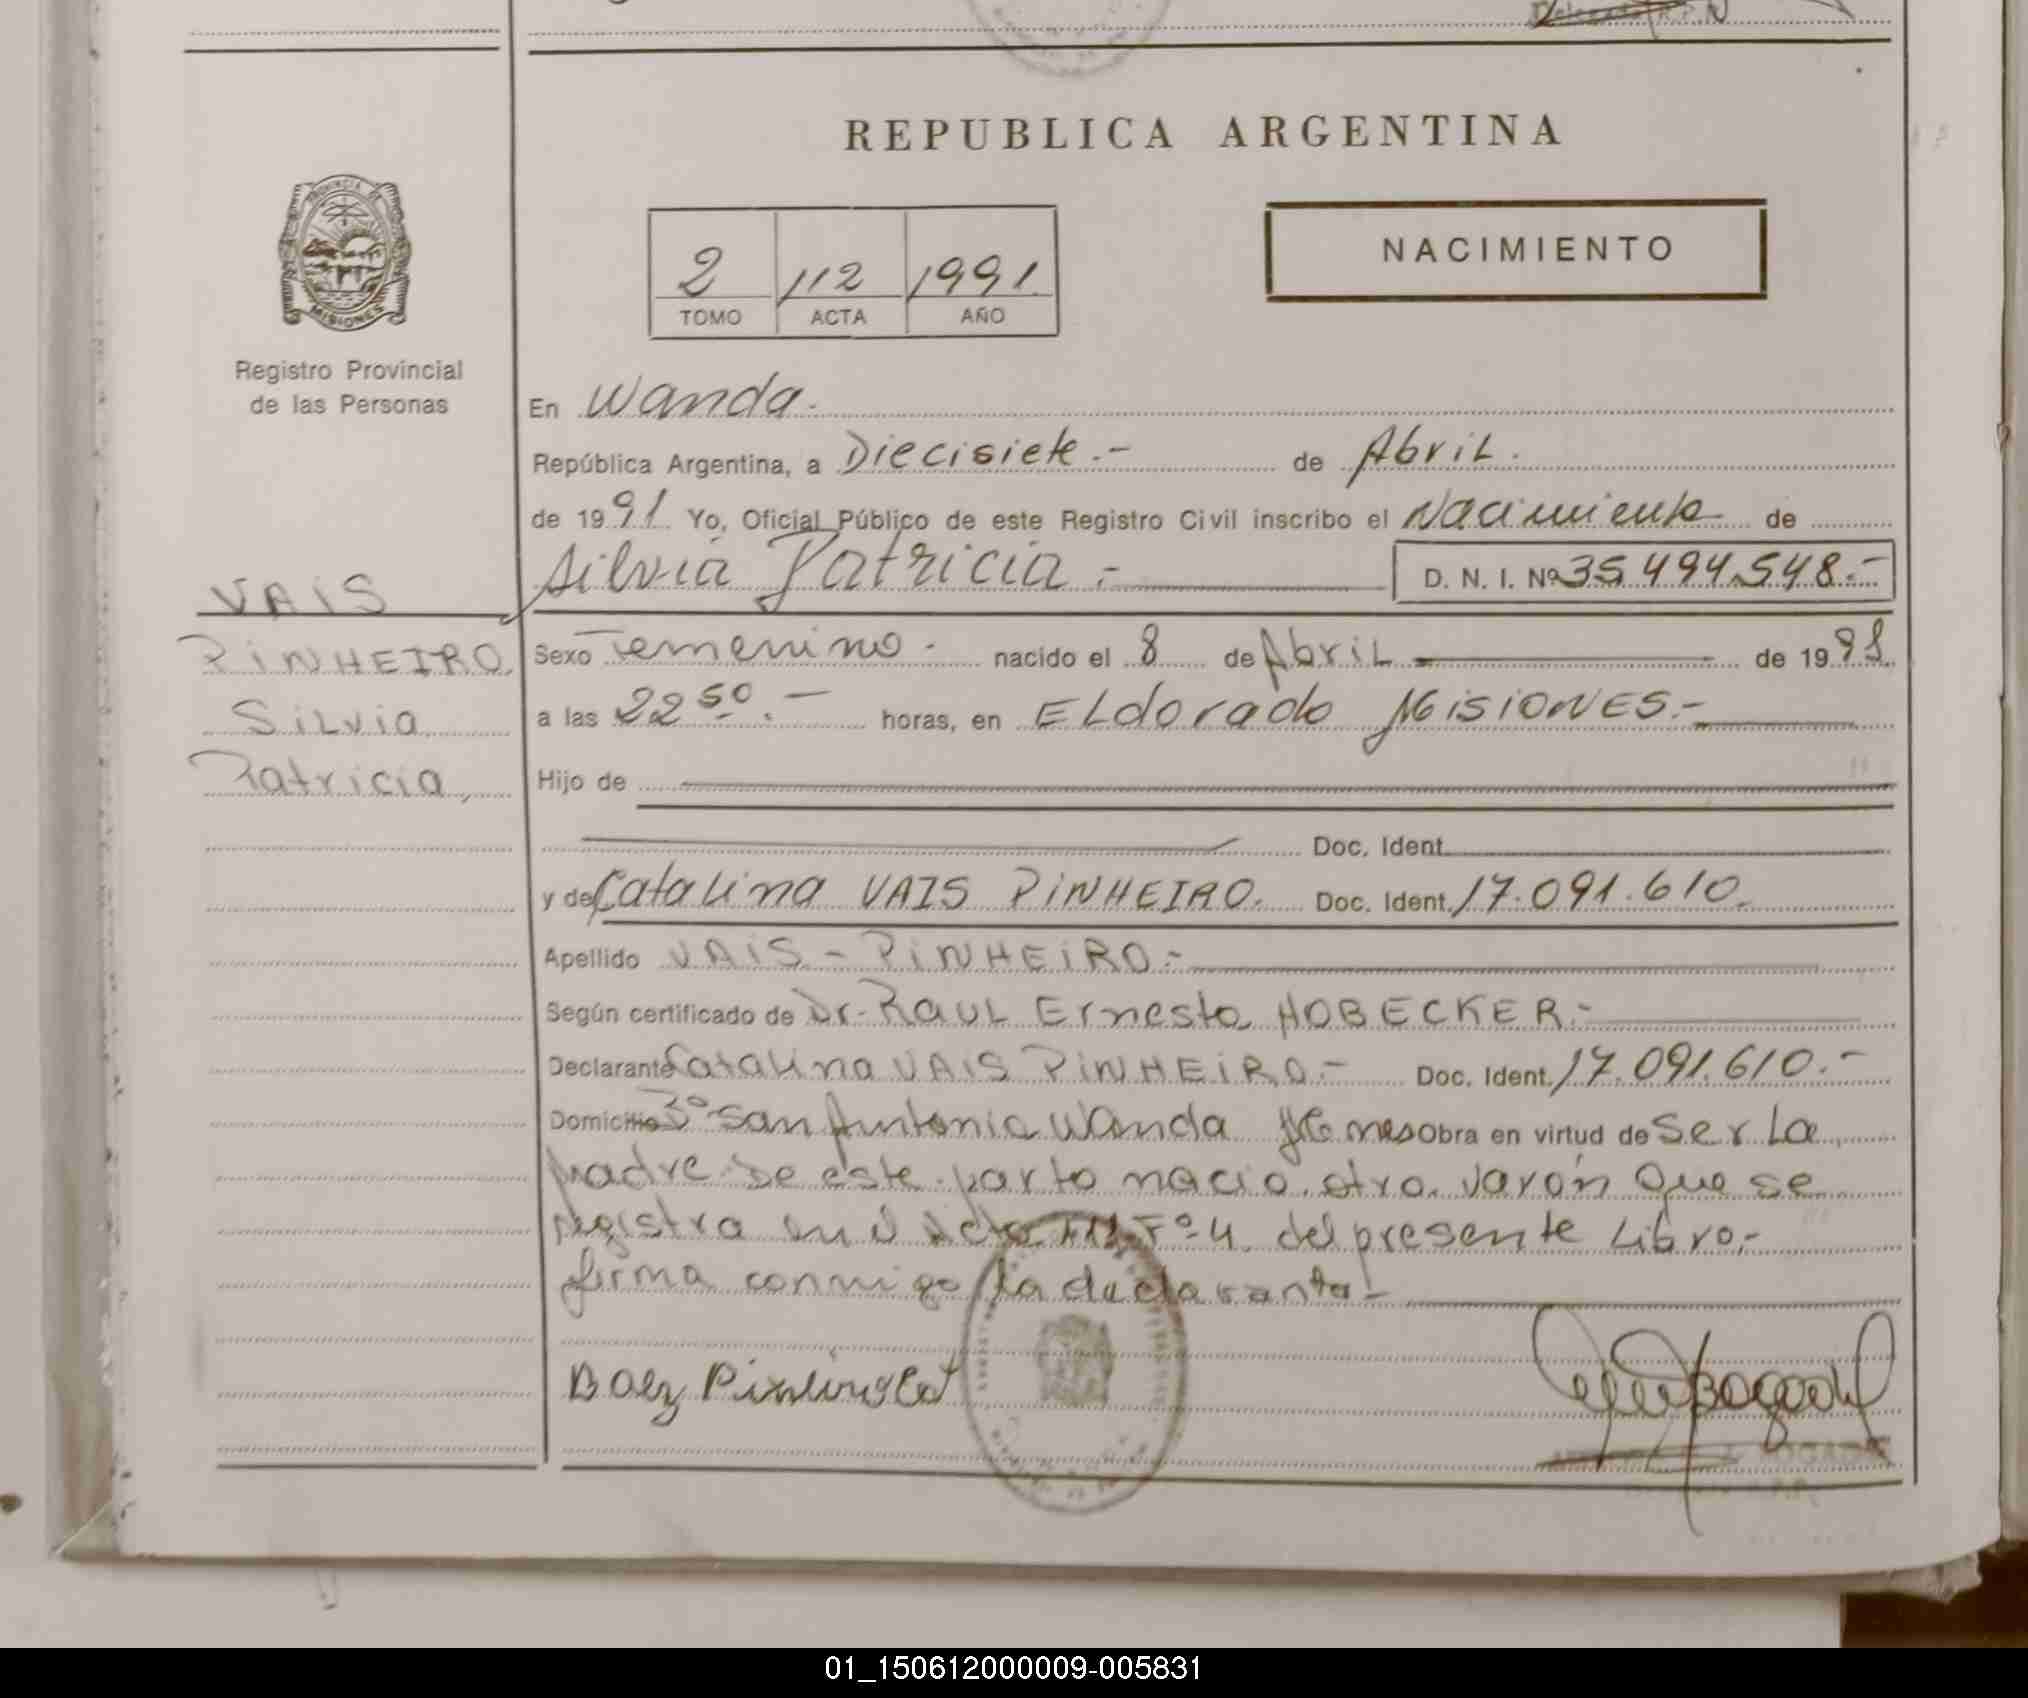 REPUBLICA ARGENTINA
PROVINCIA DE
MISIONES
Registro Provincial
de las Personas
2 112 1991
TOMO ACTA AÑO
NACIMIENTO
En Wanda.
República Argentina, a Diecisiete.- de Abril.
de 1991 Yo, Oficial Público de este Registro Civil inscribo el Nacimiento de
Silvia Patricia.- D. N. I. Nº 35.494.548.-
VAIS
PINHEIRO
Silvia
Patricia,
Sexo Femenino. nacido el 8 de Abril de 19
a las 22 50.- horas, en ELdorado MisiONES.-
Hijo de
Doc. Ident.
y de Catalina VAIS PINHEIRO. Doc. Ident. 17.091.610.
Apellido VAIS - PINHEIRO.-
Según certificado de Dr. RAUL Ernesto HOBECKER.-
Declarante Catalina VAIS PINHEIRO.- Doc. Ident. 17.091.610.-
Domicilio San Antonio Wanda Mnes Obra en virtud de ser La
Madre. De este parto nacio otro varón que se
registra en el Acta 111 Fº 4 del presente Libro.-
firma conmigo la declarante.-
01_150612000009-005831